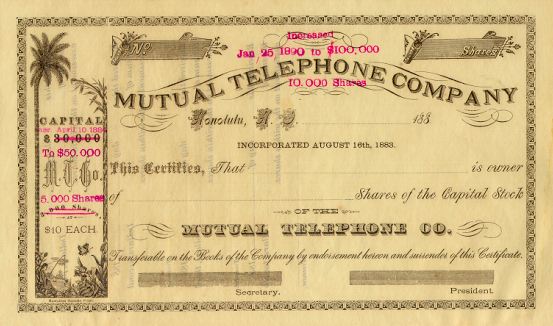 Increased
Jan 25 1890 to $100,000
10.000 Shares
No.
Shares
MUTUAL TELEPHONE COMPANY
Honolulu, H. I. 188
INCORPORATED AUGUST 16th, 1883.
This Certifies, That is owner
of Shares of the Capital Stock
OF THE
MUTUAL TELEPHONE CO.
Transferable on the Books of the Company by endorsement hereon and surrender of this Certificate.
Secretary. President.
CAPITAL
April 10 188
$30,000
To $50.000
M.T.Co.
5.000 Shares
Shares
AT
$10 EACH